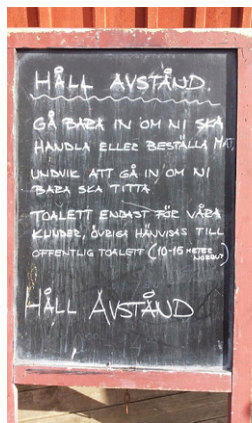 HÅLL AVSTÅND.
GÅ BARA IN OM NI SKA
HANDLA ELLER BESTÄLLA MAT,
UNDVIK ATT GÅ IN OM NI
BARA SKA TITTA
TOALETT ENDAST FÖR VÅRA
KUNDER, ÖVRIGA HÄNVISAS TILL
OFFENTLIG TOALETT (10-15 METER
HÅLL AVSTÅND